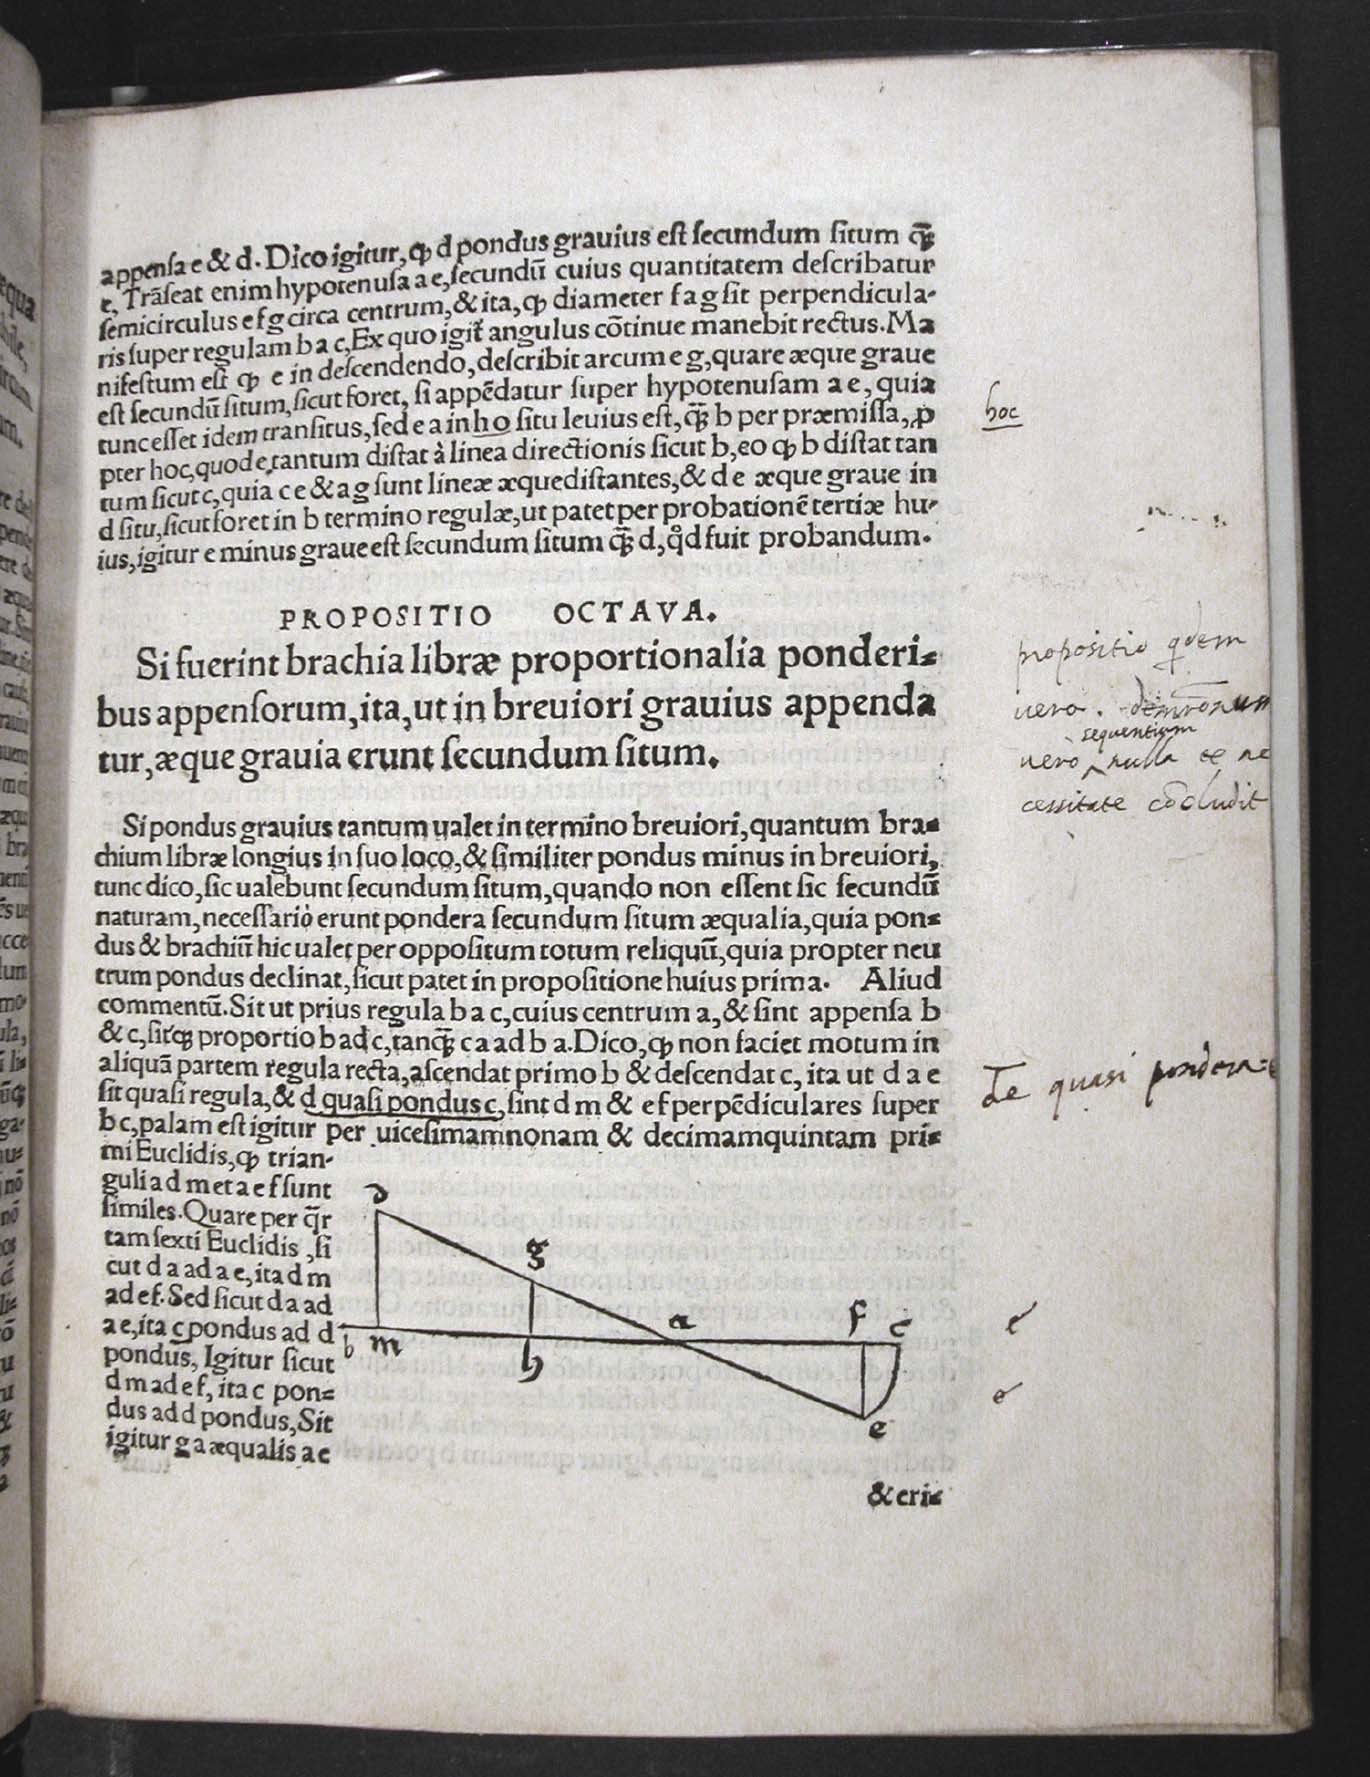 appensa e & d. Dico igitur, ꝙ d pondus grauius est secundum situm q̃ꝫ
e, Trãseat enim hypotenusa a e, secundũ cuius quantitatem describatur
semicirculus e f g circa centrum, & ita, ꝙ diameter f a g sit perpendicula-
ris super regulam b a c, Ex quo igit̃ angulus cõtinue manebit rectus. Ma
nifestum est ꝙ e in descendendo, describit arcum e g, quare æque graue
est secundũ situm, sicut foret, si appẽdatur super hypotenusam a e, quia
tunc esset idem transitus, sed e a in ho situ leuius est, q̃ꝫ b per præmissa, ꝓ
hoc
pter hoc, quod e, tantum distat à linea directionis sicut b, eo ꝙ b distat tan
tum sicut c, quia c e & a g sunt lineæ æquedistantes, & d e æque graue in
d situ, sicut foret in b termino regulæ, ut patet per probationẽ tertiæ hu-
ius, igitur e minus graue est secundum situm q̃ꝫ d, qd̓ fuit probandum.
PROPOSITIO OCTAVA.
Si fuerint brachia libræ proportionalia ponderi-
bus appensorum, ita, ut in breuiori grauius appenda
tur, æque grauia erunt secundum situm.
propositio qdem
uera.
sequentium
uerò nulla
cessitate cõcludit
Si pondus grauius tantum ualet in termino breuiori, quantum bra-
chium libræ longius in suo loco, & similiter pondus minus in breuiori,
tunc dico, sic ualebunt secundum situm, quando non essent sic secundũ
naturam, necessariò erunt pondera secundum situm æqualia, quia pon-
dus & brachiũ hic ualet per oppositum totum reliquũ, quia propter neu
trum pondus declinat, sicut patet in propositione huius prima. Aliud
commentũ. Sit ut prius regula b a c, cuius centrum a, & sint appensa b
& c, sitqꝫ proportio b ad c, tanq̃ꝫ c a ad b a. Dico, ꝙ non faciet motum in
aliquã partem regula recta, ascendat primo b & descendat c, ita ut d a e
sit quasi regula, & d quasi pondus c, sint d m & e f perpẽdiculares super
quasi pondera
b c, palam est igitur per uicesimamnonam & decimamquintam pri-
mi Euclidis, ꝙ trian-
guli a d m et a e f sunt
similes. Quare per q̃r
tam sexti Euclidis, si
cut d a ad a e, ita d m
ad e f. Sed sicut d a ad
a e, ita c pondus ad d
pondus, Igitur sicut
d m ad e f, ita c pon-
dus ad d pondus, Sit
igitur g a æqualis a e
d
g
a
f
c
b
m
h
e
e
e
& eri-